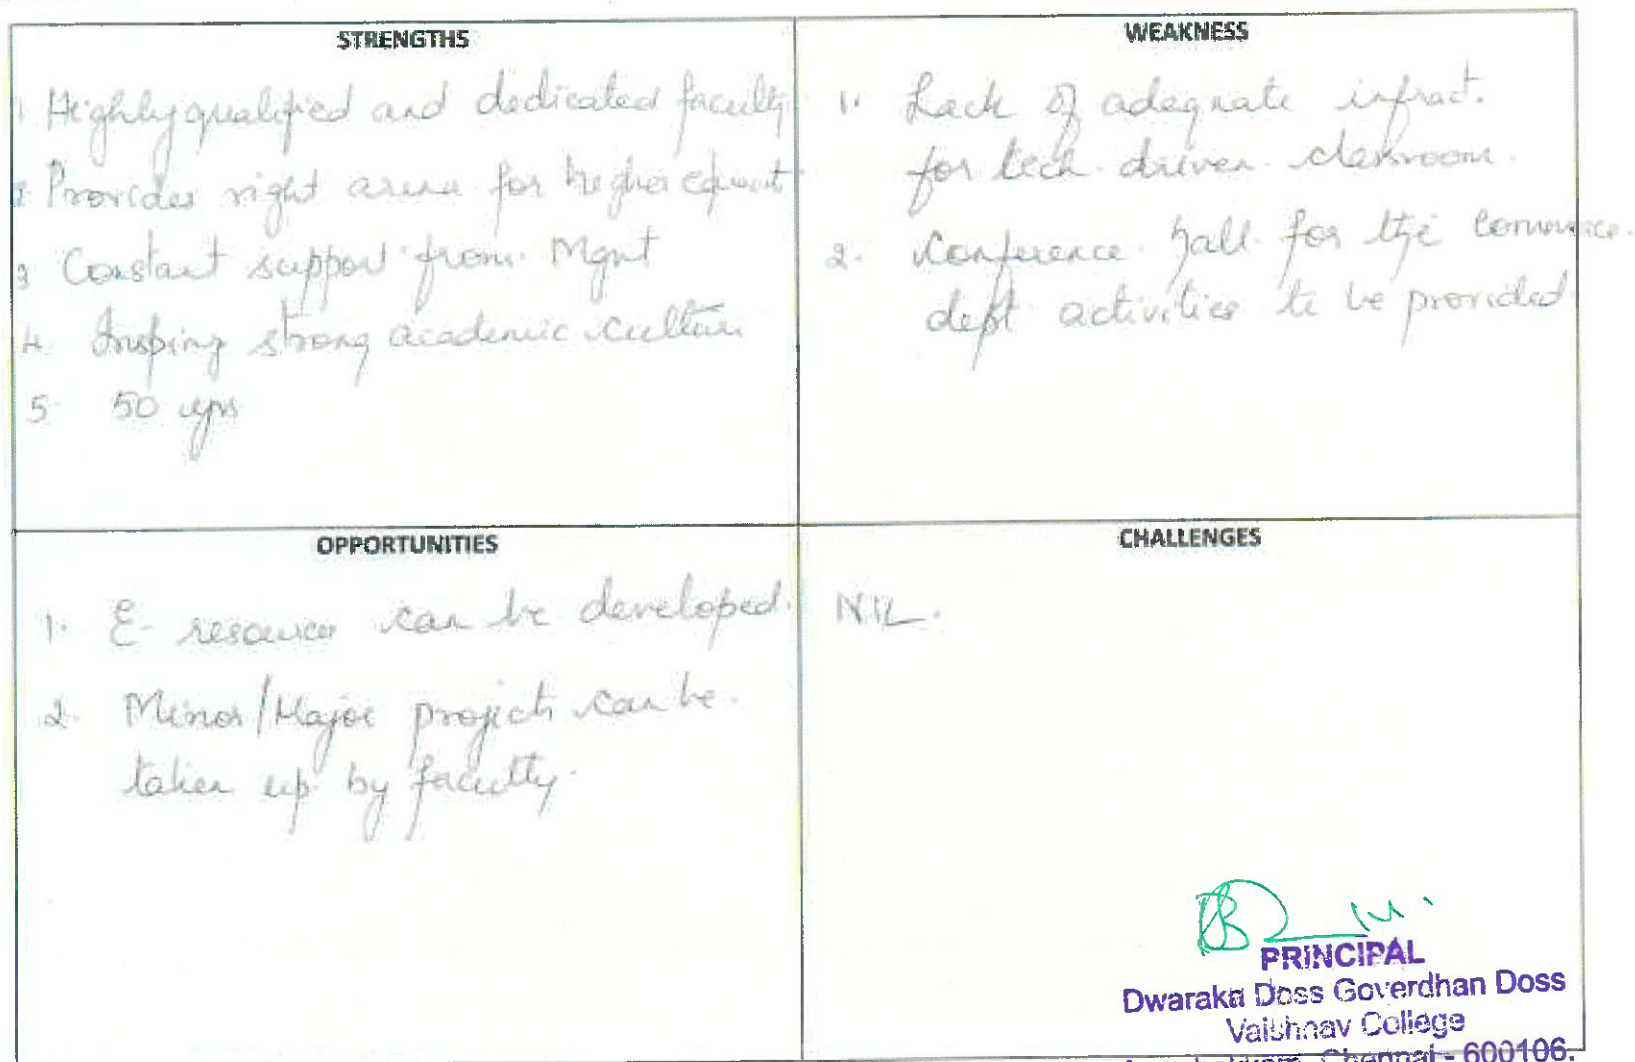 STRENGTHS
1 Highly qualified and dedicated faculty
2 Provides right arena for higher
3 Constant support from Mgnt
4. strong academic culture
5. 50 yrs
WEAKNESS
1. Lack of adequate infract.
for tech driven classroom.
2. Conference hall for the commerce.
dept activities to be provided
OPPORTUNITIES
1. E- resources can be developed.
2. Minor/Major projects can be.
taken up by faculty.
CHALLENGES
NIL.
PRINCIPAL
Dwaraka Doss Goverdhan Doss
Vaishnav College
Chennai - 600106.